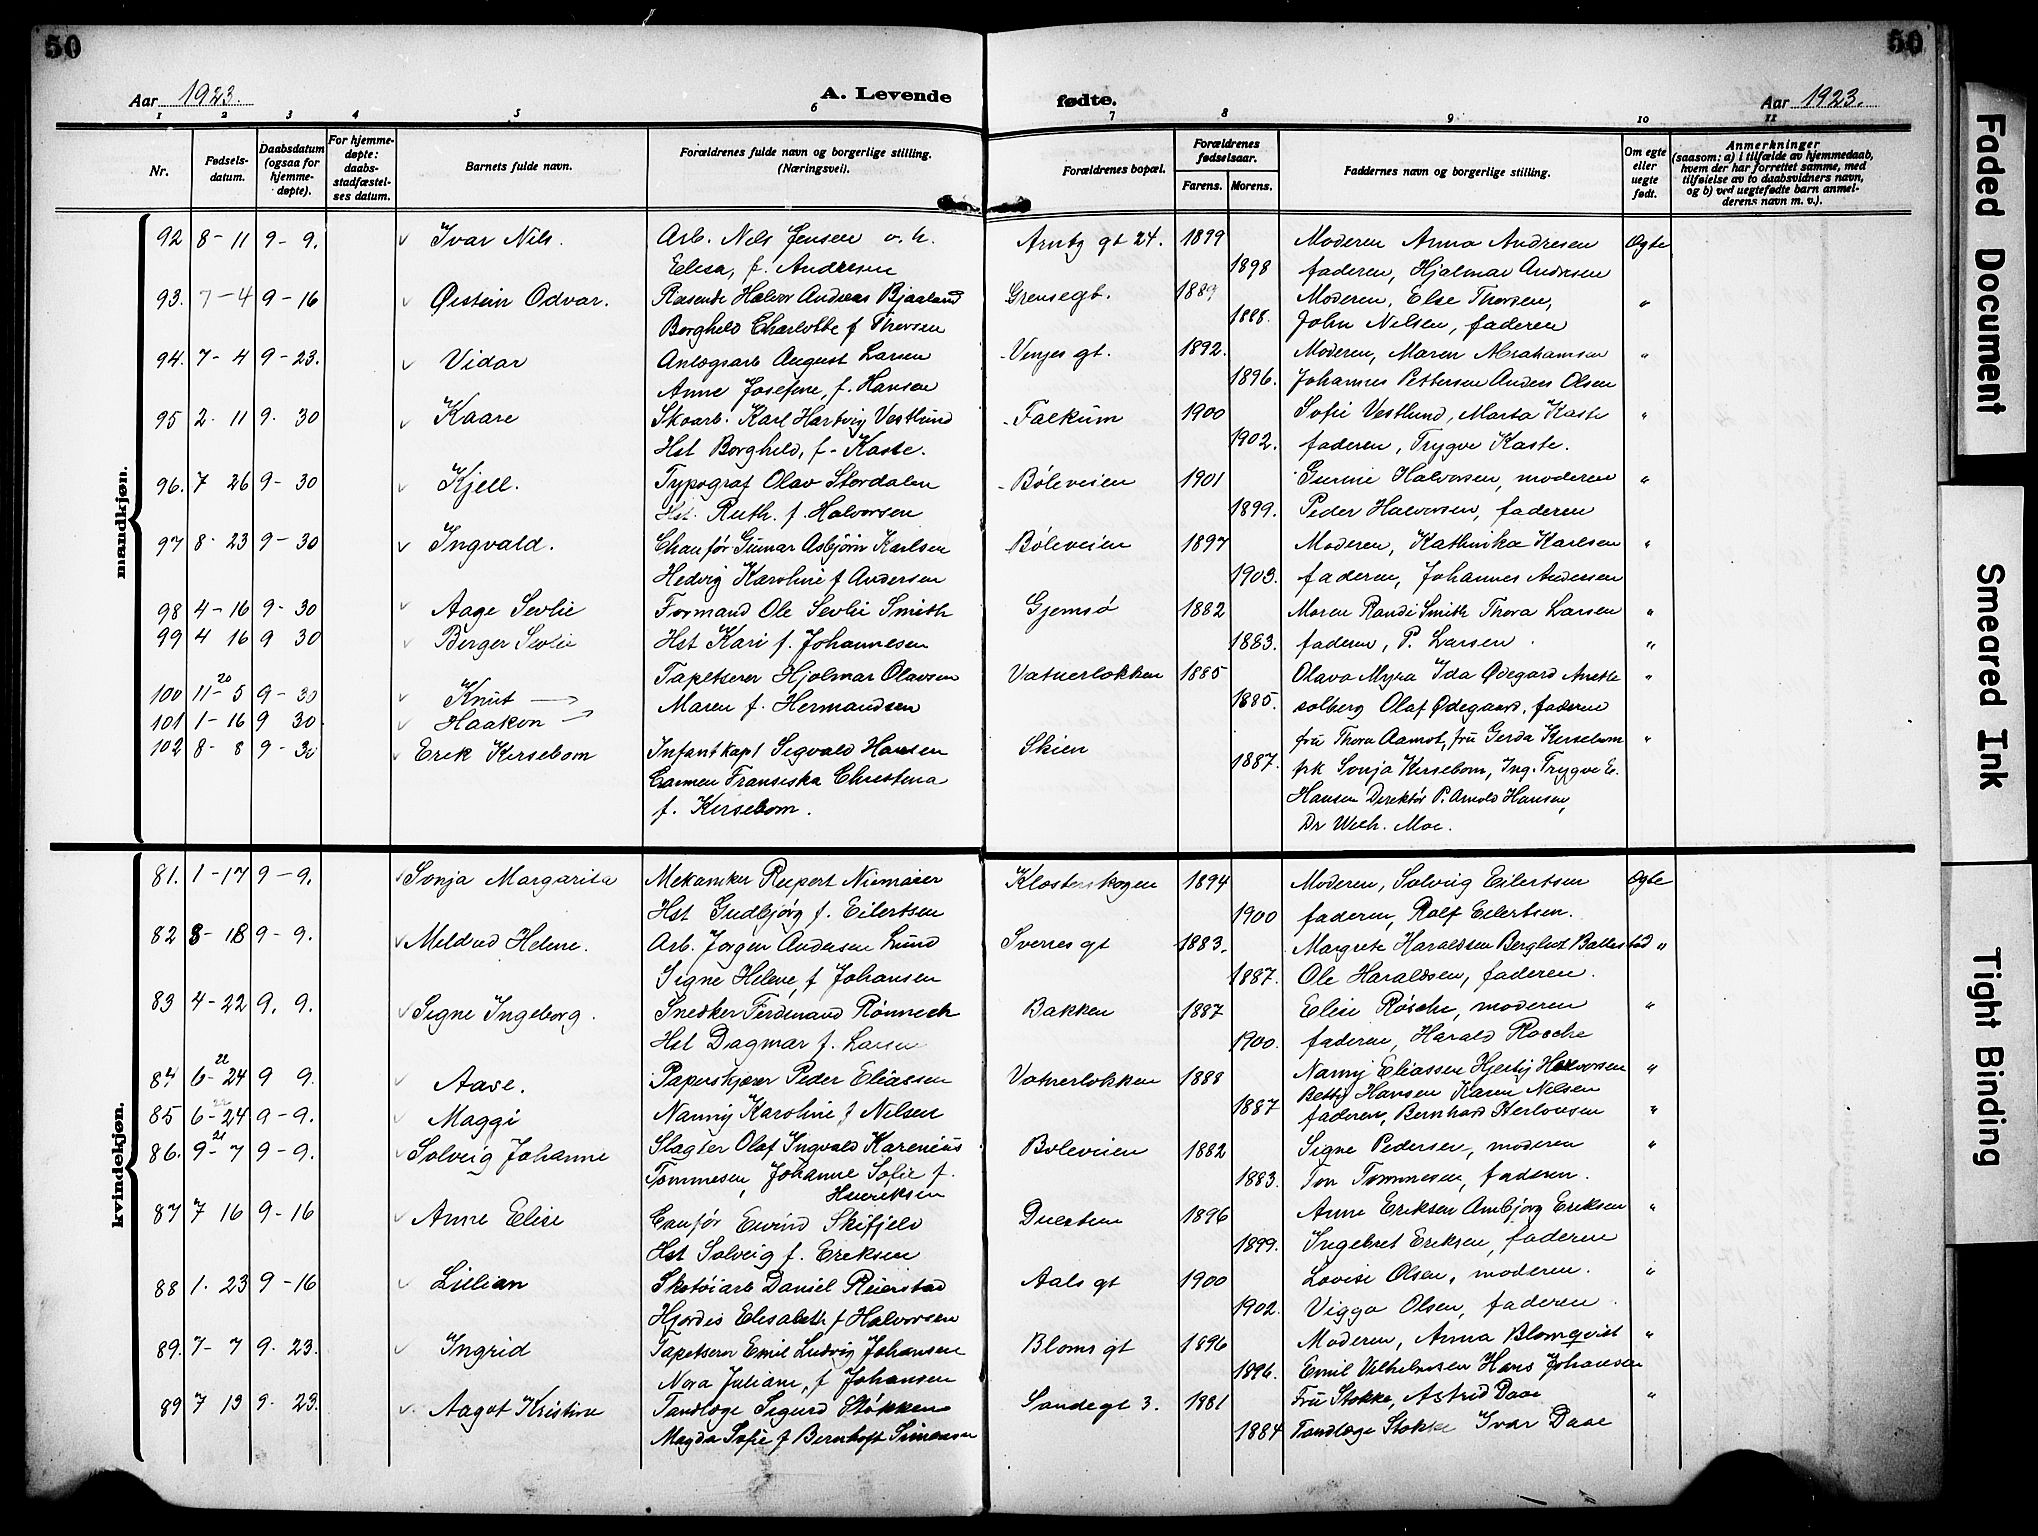 50
50
Aar 1923.
A. Levende
fødte.
Aar 1923.
1 2 3 4 5 6 7 8 9 10 11
Nr.
Fødsels-
datum.
Daabsdatum
(ogsaa for
hjemme-
døpte).
For hjemme-
døpte:
daabs-
stadfæstel-
ses datum.
Barnets fulde navn.
Forældrenes fulde navn og borgerlige stilling.
(Næringsvei).
Forældrenes bopæl.
Forældrenes
fødselsaar.
Farens. Morens.
Faddernes navn og borgerlige stilling.
Om egte
eller
uegte
født.
Anmerkninger
(saasom: a) i tilfælde av hjemmedaab,
hvem der har forrettet samme, med
tilføielse av to daabsvidners navn,
og b) ved uegtefødte barn anmel-
derens navn m. v.).
mandkjøn.
92 8-11 9-9. Ivar Nils. Arb. Nils Jensen o. h. Arntz gt 24. 1899 Moderen Anna Andresen Egte
Elisa, f. Andresen 1898 faderen, Hjalmar Andresen
93. 7-4 9-16 Øistein Odvar. Reisende Halvor Andreas Bjaaland Grensegt. 1889 Moderen, Else Thorsen, "
Borghild Charlotte f Thorsen 1888. John Nilsen, faderen
94. 7-4 9-23. Vidar Anlægsarb August Larsen Venjes gt. 1892. Moderen, Maren Abrahamsen "
Anne Josefine, f. Hansen 1896. Johannes Pettersen Anders Olsen
95 2-11 9-30 Kaare Skoarb. Karl Hartvig Vestlund Falkum 1900 Sofie Vestlund, Marta Kaste "
Hst Borghild, f. Kaste. 1902. faderen, Trygve Kaste.
96. 7 26 9-30 Kjell. Typograf Olav Stordalen Bøleveien 1901 Gunne Halvorsen, moderen "
Hst. Ruth. f. Halvorsen 1899. Peder Halvorsen, faderen
97 8-23 9-30 Ingvald. Chauför Gunnar Asbjörn Karlsen Bøleveien 1897 Moderen, Kathinka Karlsen "
Hedvig Karoline f Andersen 1903. faderen, Johannes Andersen
98 4-16 9-30 Aage Sevlie Formand Ole Sevlie Smith Gjemsø 1882 Moren Randi Smith Thora Larsen "
99 4 16 9 30 Berger Sevlie Hst Kari f. Johannesen 1883. faderen, P. Larsen "
Tapetserer Hjalmar Olavsen Vatnerløkken 1885 Olava Myra Ida Ødegard Anette "
100 11-5 20 9-30 Knut Maren f. Hermandsen 1885. solberg Olaf Ødegaard, faderen
101 1-16 9 30 Haakon
102 8-8 9-30 Erik Kirsebom Infantkapt Sigvald Hansen Skien fru Thora Aamot, fru Gerda Kirsebom "
Carmen Fransiska Christina 1887. frk Sonja Kirsebom, Ing. Trygve E.
f. Kirsebom. Hansen Direktør P. Arnold Hansen,
Dr Wilh. Moe.
kvindekjøn.
81. 1-17 9-9. Sonja Margarita Mekaniker Rupert Niemaier Klosterskogen 1894 Moderen, Solveig Eilertsen Egte
Hst Gudbjørg f. Eilertsen 1900 faderen, Rolf Eilertsen.
82 8-18 9-9. Mildrid Helene. Arb. Jørgen Andersen Lund Sverres gt 1883. Margrete Haraldsen Bergliot Ballestad "
Signe Helene, f Johansen 1887. Ole Haraldsen, faderen.
83 4-22 9. 9. Signe Ingeborg. Snedker Ferdinand Rønnech Bakken 1887 Elise Røsche, moderen "
Hst Dagmar f. Larsen 1900. faderen, Harald Rosche
84 6-24 22 9 9. Aase. Paperskjærer Peder Eliassen Vatnerløkken 1888 Nanny Eliassen Hjerdy Halvorsen "
Betty Hansen Karen Nilsen
85 6-24 22 9-9. Maggi Nanny Karoline f Nilsen 1887 faderen, Bernhard Herlovsen "
86. 9-7 21 9-9. Solveig Johanne Slagter Olaf Ingvald Karenius Bøleveien 1882 Signe Pedersen, moderen "
Tommesen, Johanne Sofie f. 1883. Tor Tommesen, faderen.
Henriksen
87 7 16 9-16 Anne Elise Caufør Eivind Skifjeld Duestien 1896 Anne Eriksen Ambjørg Eriksen "
Hst Solveig f. Eriksen 1899. Ingebret Eriksen, faderen
88 1. 23 9-16 Lillian Skotøiarb Daniel Reierstad Aals gt 1900 Lovise Olsen, moderen. "
Hjørdis Elisabeth f Halvorsen 1902. Viggo Olsen, faderen.
89. 7-7 9. 23. Ingrid Tapetserer Emil Ludvig Johansen Bloms gt 1896 Moderen, Anna Blomqvist "
Nora Juliane, f Johansen 1896. Emil Vilhelmsen Hans Johansen
89 7 13 9. 23. Aagot Kristine Tandlæge Sigurd Støkken Sandegt 3. 1881 Fru Stokke, Astrid Daae "
Magda Sofie f Bernhoft Simonsen 1884 Tandlæge Stokke Ivar Daae
Faded Document
Smeared Ink
Tight Binding